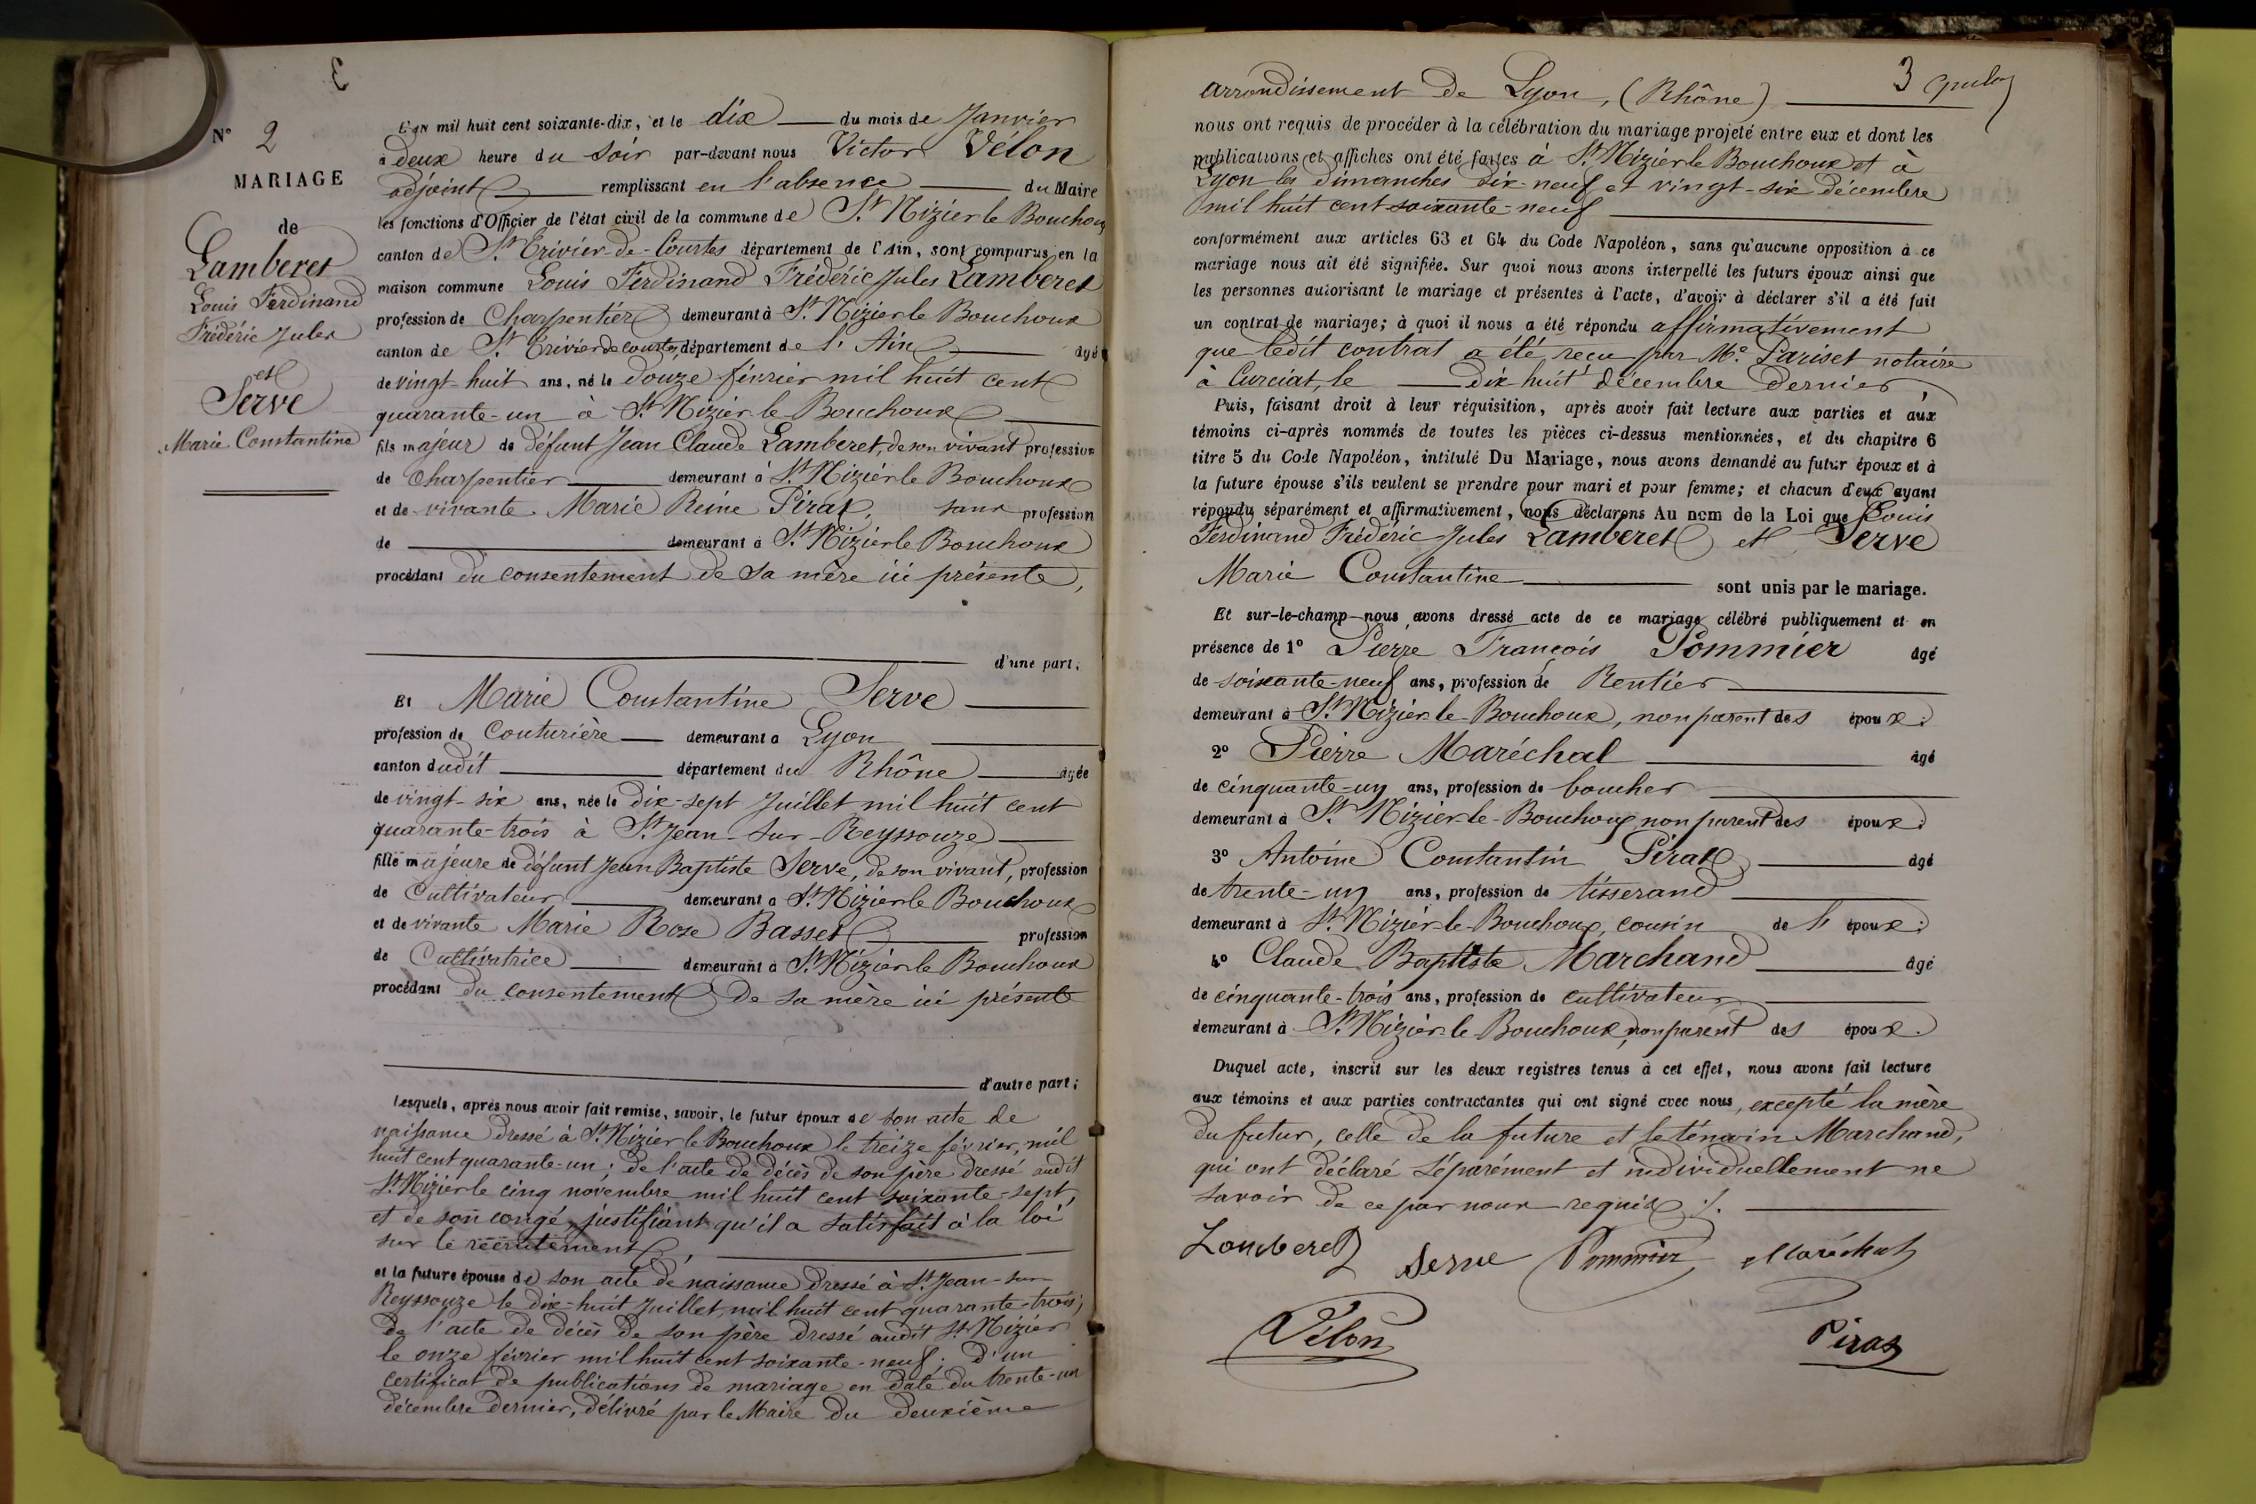 N° 2
MARIAGE
de
Lamberet
Louis Ferdinand
Frédéric Jules
et
Serve
Marie Constantine
L'an mil huit cent soixante-dix, et le dix du mois de Janvier
à deux heure du soir par-devant nous Victor Vélon
adjoint remplissant en l'absence du Maire
les fonctions d'Officier de l'état civil de la commune de St Nizier le Bouchoux
canton de St Trivier-de-Courtes département de l'Ain, sont comparus en la
maison commune Louis Ferdinand Frédéric Jules Lamberet
profession de Charpentier demeurant à St Nizier le Bouchoux
canton de St Trivier de Courtes, département de l'Ain âgé
de vingt-huit ans, né le douze février mil huit cent
quarante-un à St Nizier-le Bouchoux
fils majeur de défunt Jean Claude Lamberet, de son vivant profession
de Charpentier demeurant à St Nizier le Bouchoux
et de vivante Marie Reine Pirat, sans profession
de demeurant à St Nizier le Bouchoux
procédant du consentement de sa mère ici présente,
d'une part.
Et Marie Constantine Serve
profession de Couturière demeurant à Lyon
canton dudit département du Rhône âgée
de vingt-six ans, née le dix-sept Juillet mil huit cent
quarante-trois à St Jean-sur-Reyssouze
fille majeure de défunt Jean Baptiste Serve, de son vivant, profession
de Cultivateur demeurant à St Nizier le Bouchoux
et de vivante Marie Rose Basset profession
de Cultivatrice demeurant à St Nizier le Bouchoux
procédant du consentement de sa mère ici présente
d'autre part;
Lesquels, après nous avoir fait remise, savoir, le futur époux de son acte de
naissance dressé à St Nizier le Bouchoux le treize février, mil
huit cent quarante-un; de l'acte de décès de son père dressé audit
St Nizier le cinq novembre mil huit cent soixante-sept,
et de son congé, justifiant qu'il a satisfait à la loi
sur le recrutement,
et la future épouse de son acte de naissance dressé à St Jean-sur-
Reyssouze le dix-huit Juillet, mil huit cent quarante-trois;
de l'acte de décès de son père dressé audit St Nizier
le onze février mil huit cent soixante-neuf; d'un
certificat de publications de mariage en date du trente-un
décembre dernier, délivré par le Maire du deuxième
3
arrondissement de Lyon, (Rhône)
nous ont requis de procéder à la célébration du mariage projeté entre eux et dont les
publications et affiches ont été faites à St Nizier le Bouchoux et à
Lyon les dimanches dix-neuf et vingt-six décembre
mil huit cent soixante-neuf
conformément aux articles 63 et 64 du Code Napoléon, sans qu'aucune opposition à ce
mariage nous ait été signifiée. Sur quoi nous avons interpellé les futurs époux ainsi que
les personnes autorisant le mariage et présentes à l'acte, d'avoir à déclarer s'il a été fait
un contrat de mariage; à quoi il nous a été répondu affirmativement
que ledit contrat a été reçu par Me Pariset notaire
à Curciat, le dix-huit décembre dernier
Puis, faisant droit à leur réquisition, après avoir fait lecture aux parties et aux
témoins ci-après nommés de toutes les pièces ci-dessus mentionnées, et du chapitre 6
titre 5 du Code Napoléon, intitulé Du Mariage, nous avons demandé au futur époux et à
la future épouse s'ils veulent se prendre pour mari et pour femme; et chacun d'eux ayant
répondu séparément et affirmativement, nous déclarons Au nom de la Loi que Louis
Ferdinand Frédéric Jules Lamberet et Serve
Marie Constantine sont unis par le mariage.
Et sur-le-champ nous avons dressé acte de ce mariage célébré publiquement et en
présence de 1° Pierre François Pommier âgé
de soixante-neuf ans, profession de Rentier
demeurant à St Nizier-le-Bouchoux, non parent des époux.
2° Pierre Maréchal âgé
de cinquante-un ans, profession de boucher
demeurant à St Nizier-le-Bouchoux non parent des époux.
3° Antoine Constantin Pirat âgé
de trente-un ans, profession de tisserand
demeurant à St Nizier-le-Bouchoux, cousin de l' époux.
4° Claude Baptiste Marchand âgé
de cinquante-trois ans, profession de cultivateur
demeurant à St Nizier-le Bouchoux, non parent des époux.
Duquel acte, inscrit sur les deux registres tenus à cet effet, nous avons fait lecture
aux témoins et aux parties contractantes qui ont signé avec nous, excepté la mère
du futur, celle de la future et le témoin Marchand,
qui ont déclaré séparément et individuellement ne
savoir de ce par nous requis ./.
Lamberet Serve Pommier Maréchal
Vélon Pirat